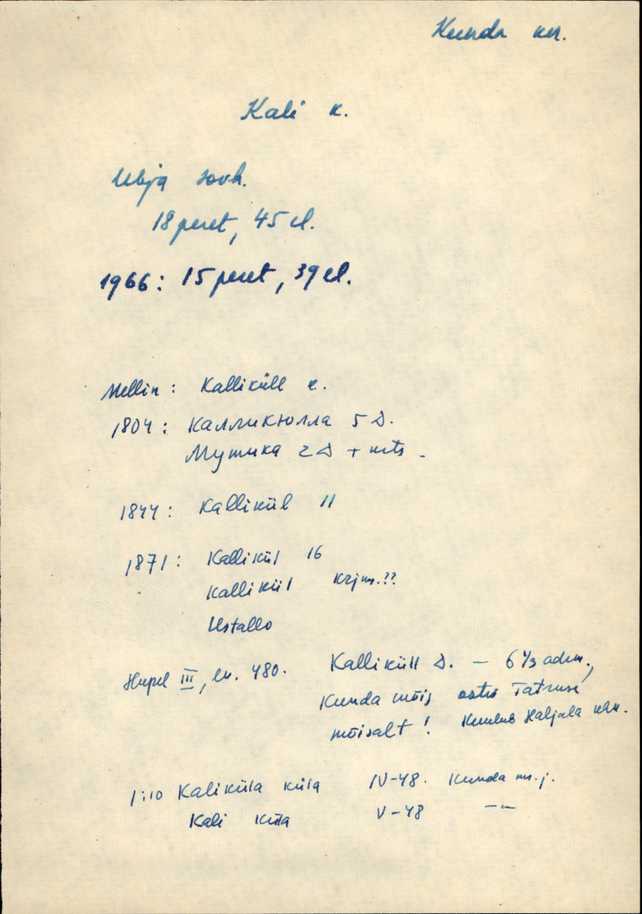 Kunda kn.
Kali k.
Ubja sovh.
18 peret, 45 el.
1966: 15 peret, 39 el.
Mellin: Kalliküll k.
1804: Калликюлла 5 D.
Мутика 2 D + mts.
1844: Kallikül 11
1871: Kallikül 16
Kallikül krjm.??
Ustallo
Hupel III, lk. 480. Kalliküll D. – 6 1/3 adm.,
Kunda mõis ostis Tatruse
mõisalt! Kuulus Haljala khk.
1:10 Kaliküla küla IV-48. Kunda m. j.
Kali küla V-48 —"—